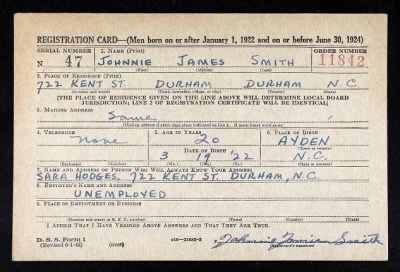 REGISTRATION CARD—(Men born on or after January 1, 1922 and on or before June 30, 1924)
SERIAL NUMBER 1. NAME (Print) ORDER NUMBER
N 47 JOHNNIE JAMES SMITH 11842
(First) (Middle) (Last)
2. PLACE OF RESIDENCE (Print)
722 KENT ST. DURHAM DURHAM N.C.
(Number and street) (Town, township, village, or city) (County) (State)
[THE PLACE OF RESIDENCE GIVEN ON THE LINE ABOVE WILL DETERMINE LOCAL BOARD
JURISDICTION; LINE 2 OF REGISTRATION CERTIFICATE WILL BE IDENTICAL]
3. MAILING ADDRESS
Same
[Mailing address if other than place indicated on line 2. If same insert word same]
4. TELEPHONE 5. AGE IN YEARS 6. PLACE OF BIRTH
None 20 AYDEN
DATE OF BIRTH (Town or county)
3 19 '22 N.C.
(Exchange) (Number) (Mo.) (Day) (Yr.) (State or country)
7. NAME AND ADDRESS OF PERSON WHO WILL ALWAYS KNOW YOUR ADDRESS
SARA HODGES, 722 KENT ST. DURHAM, N.C.
8. EMPLOYER'S NAME AND ADDRESS
UNEMPLOYED
9. PLACE OF EMPLOYMENT OR BUSINESS
(Number and street or R. F. D. number) (Town) (County) (State)
I AFFIRM THAT I HAVE VERIFIED ABOVE ANSWERS AND THAT THEY ARE TRUE.
D. S. S. Form 1
(Revised 6-1-42) (over) Johnnie James Smith
(Registrant's signature)